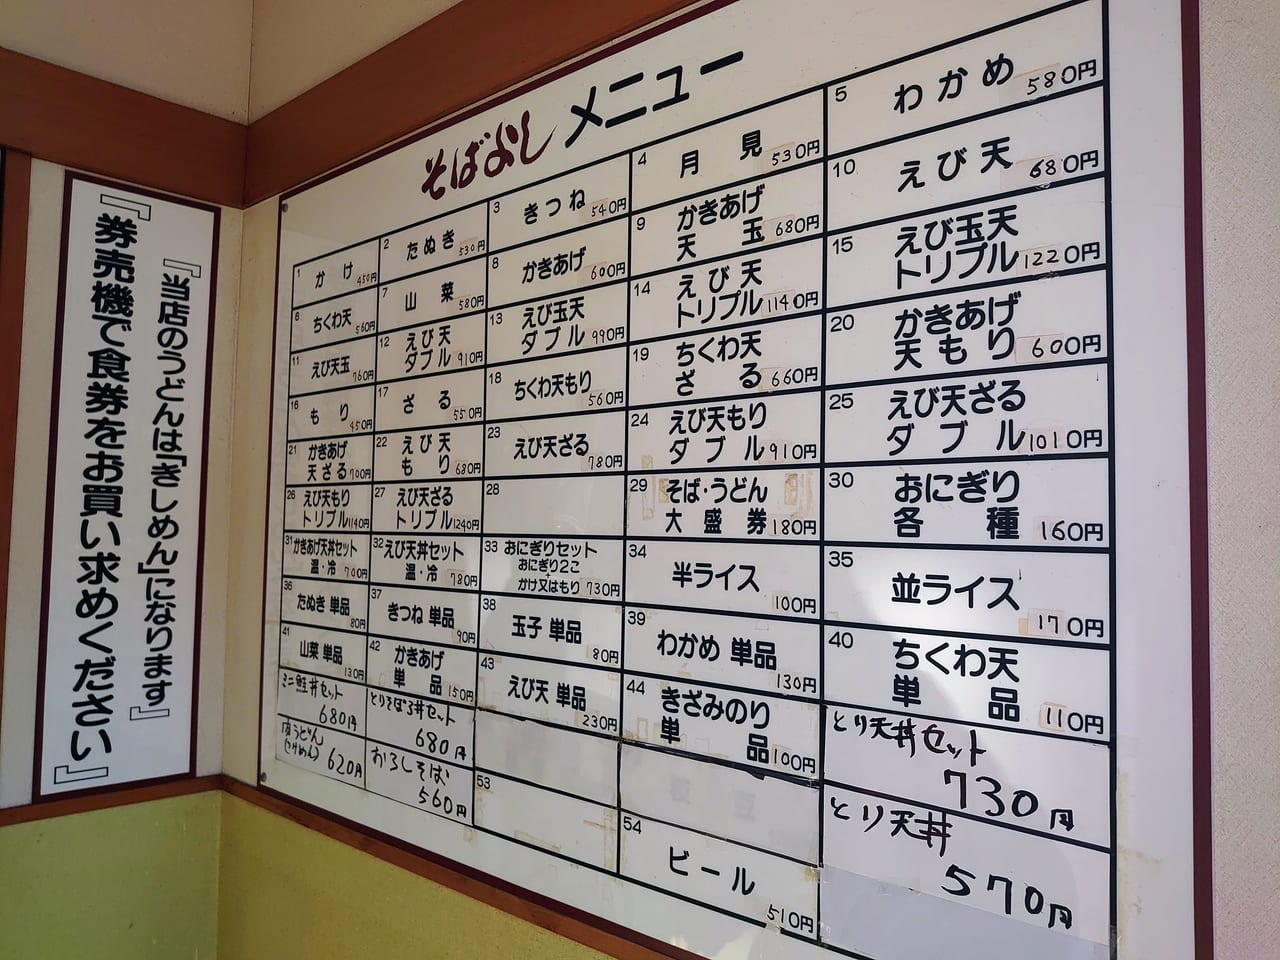 『当店のうどんは「きしめん」になります』
『券売機で食券をお買い求めください』
そばよし メニュー
1 かけ 450円
2 たぬき 530円
3 きつね 540円
4 月見 530円
5 わかめ 580円
6 ちくわ天 560円
7 山菜 580円
8 かきあげ 600円
9 かきあげ
天玉 680円
10 えび天 680円
11 えび天玉 760円
12 えび天
ダブル 910円
13 えび玉天
ダブル 990円
14 えび天
トリプル 1140円
15 えび玉天
トリプル 1220円
16 もり 450円
17 ざる 550円
18 ちくわ天もり 560円
19 ちくわ天
ざる 660円
20 かきあげ
天もり 600円
21 かきあげ
天ざる 700円
22 えび天
もり 680円
23 えび天ざる 780円
24 えび天もり
ダブル 910円
25 えび天ざる
ダブル 1010円
26 えび天もり
トリプル 1140円
27 えび天ざる
トリプル 1240円
28
29 そば・うどん
大盛券 180円
30 おにぎり
各種 160円
31 かきあげ天丼セット
温・冷 700円
32 えび天丼セット
温・冷 780円
33 おにぎりセット
おにぎり2こ
+
かけ又はもり 730円
34 半ライス 100円
35 並ライス 170円
36 たぬき 単品 80円
37 きつね 単品 90円
38 玉子 単品 80円
39 わかめ 単品 130円
40 ちくわ天
単品 110円
41 山菜 単品 130円
42 かきあげ
単品 150円
43 えび天 単品 230円
44 きざみのり
単品 100円
ミニ鮭丼セット
680円
とりそぼろ丼セット
680円
とり天丼セット
730円
肉うどん
(きしめん) 620円
おろしそば
560円
53
54 ビール 510円
とり天丼
570円